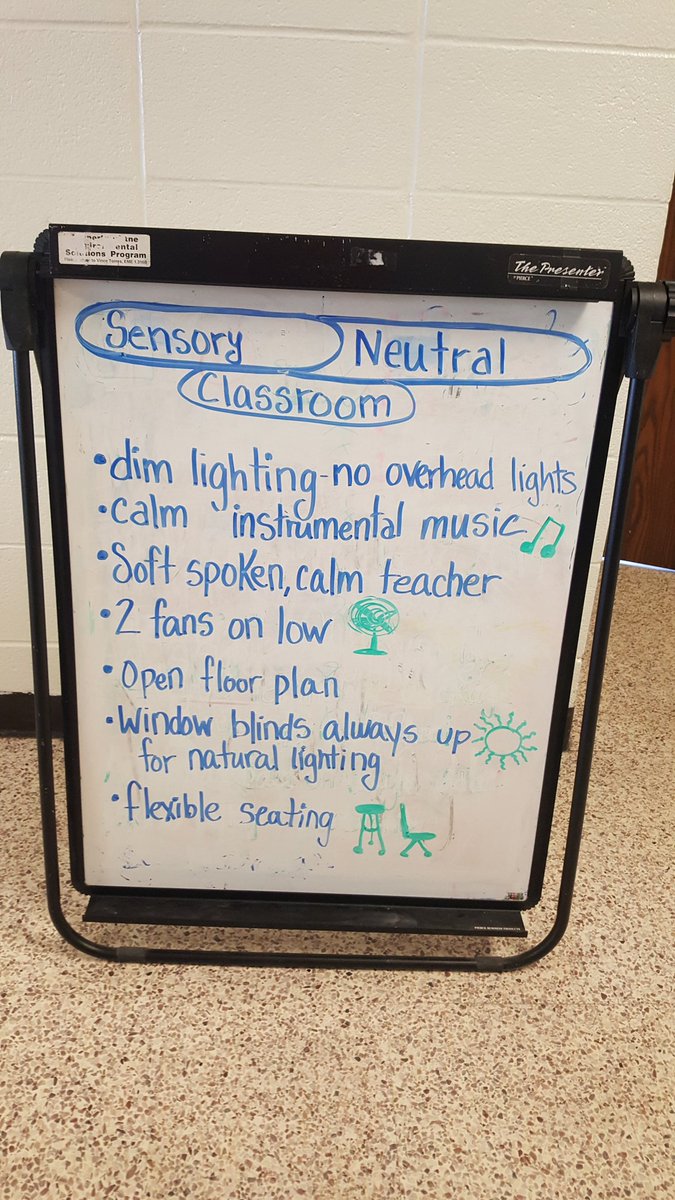 Solutions Program
The Presenter
Sensory Neutral
Classroom
•dim lighting-no overhead lights
•calm instrumental music
•Soft spoken, calm teacher
•2 fans on low
•Open floor plan
•Window blinds always up
for natural lighting
•flexible seating